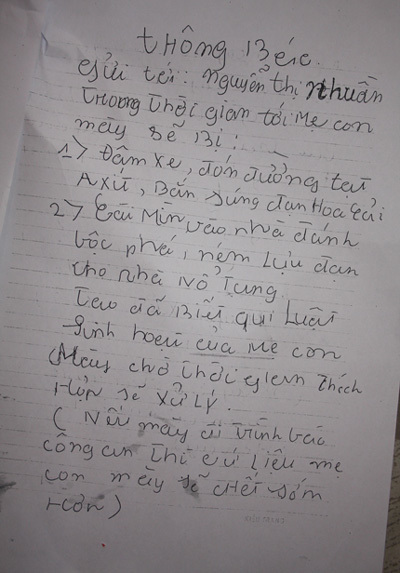 THÔNG BÉC
Gửi tới: Nguyễn thị nhuần
Trong thời gian tới Mẹ con
mày sẽ Bị:
1> Đâm xe, đón đường tạt
Axít, Bắn súng đạn Hoa cải
2> Gài Mìn vào nhà đánh
bộc phá, ném Lựu đạn
cho nhà Nổ Tung
Tao đã Biết qui Luật
sinh hoạt của Mẹ con
Mày chờ thời gian thích
Hợp sẽ xử Lý.
( Nếu mày đi trình báo
công an thì cứ Liệu mẹ
con mày sẽ chết sớm
Hơn)